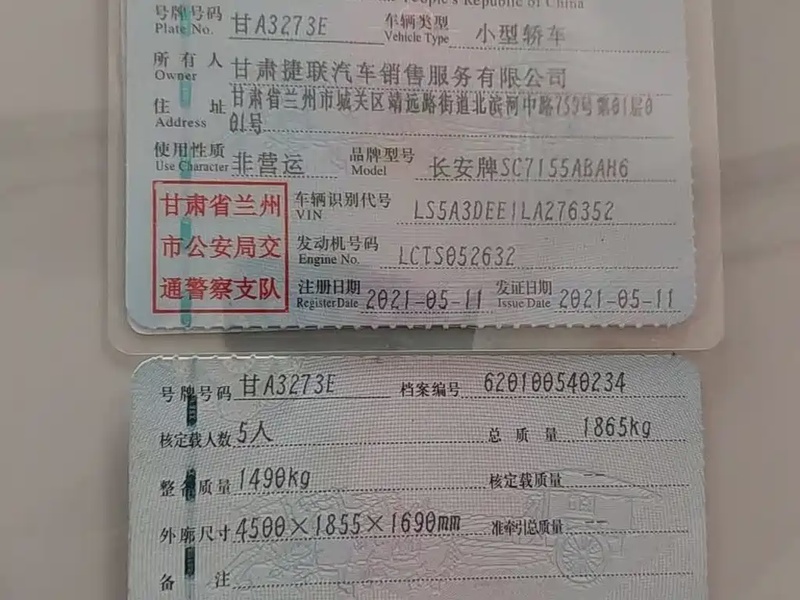 the People's Republic of China
号牌号码 甘A3273E 车辆类型 小型轿车
Plate No. Vehicle Type
所有人 甘肃捷联汽车销售服务有限公司
Owner
住址 甘肃省兰州市城关区靖远路街道北滨河中路759号第01层0
Address 01号
使用性质 非营运 品牌型号 长安牌SC7155ABAH6
Use Character Model
甘肃省兰州
市公安局交
通警察支队
车辆识别代号 LS5A3DEE1LA276352
VIN
发动机号码 LCTS052632
Engine No.
注册日期 2021-05-11 发证日期 2021-05-11
Register Date Issue Date
号牌号码 甘A3273E 档案编号 620100540234
核定载人数 5人 总质量 1865kg
整备质量 1490kg 核定载质量 --
外廓尺寸 4500×1855×1690mm 准牵引总质量 --
备注